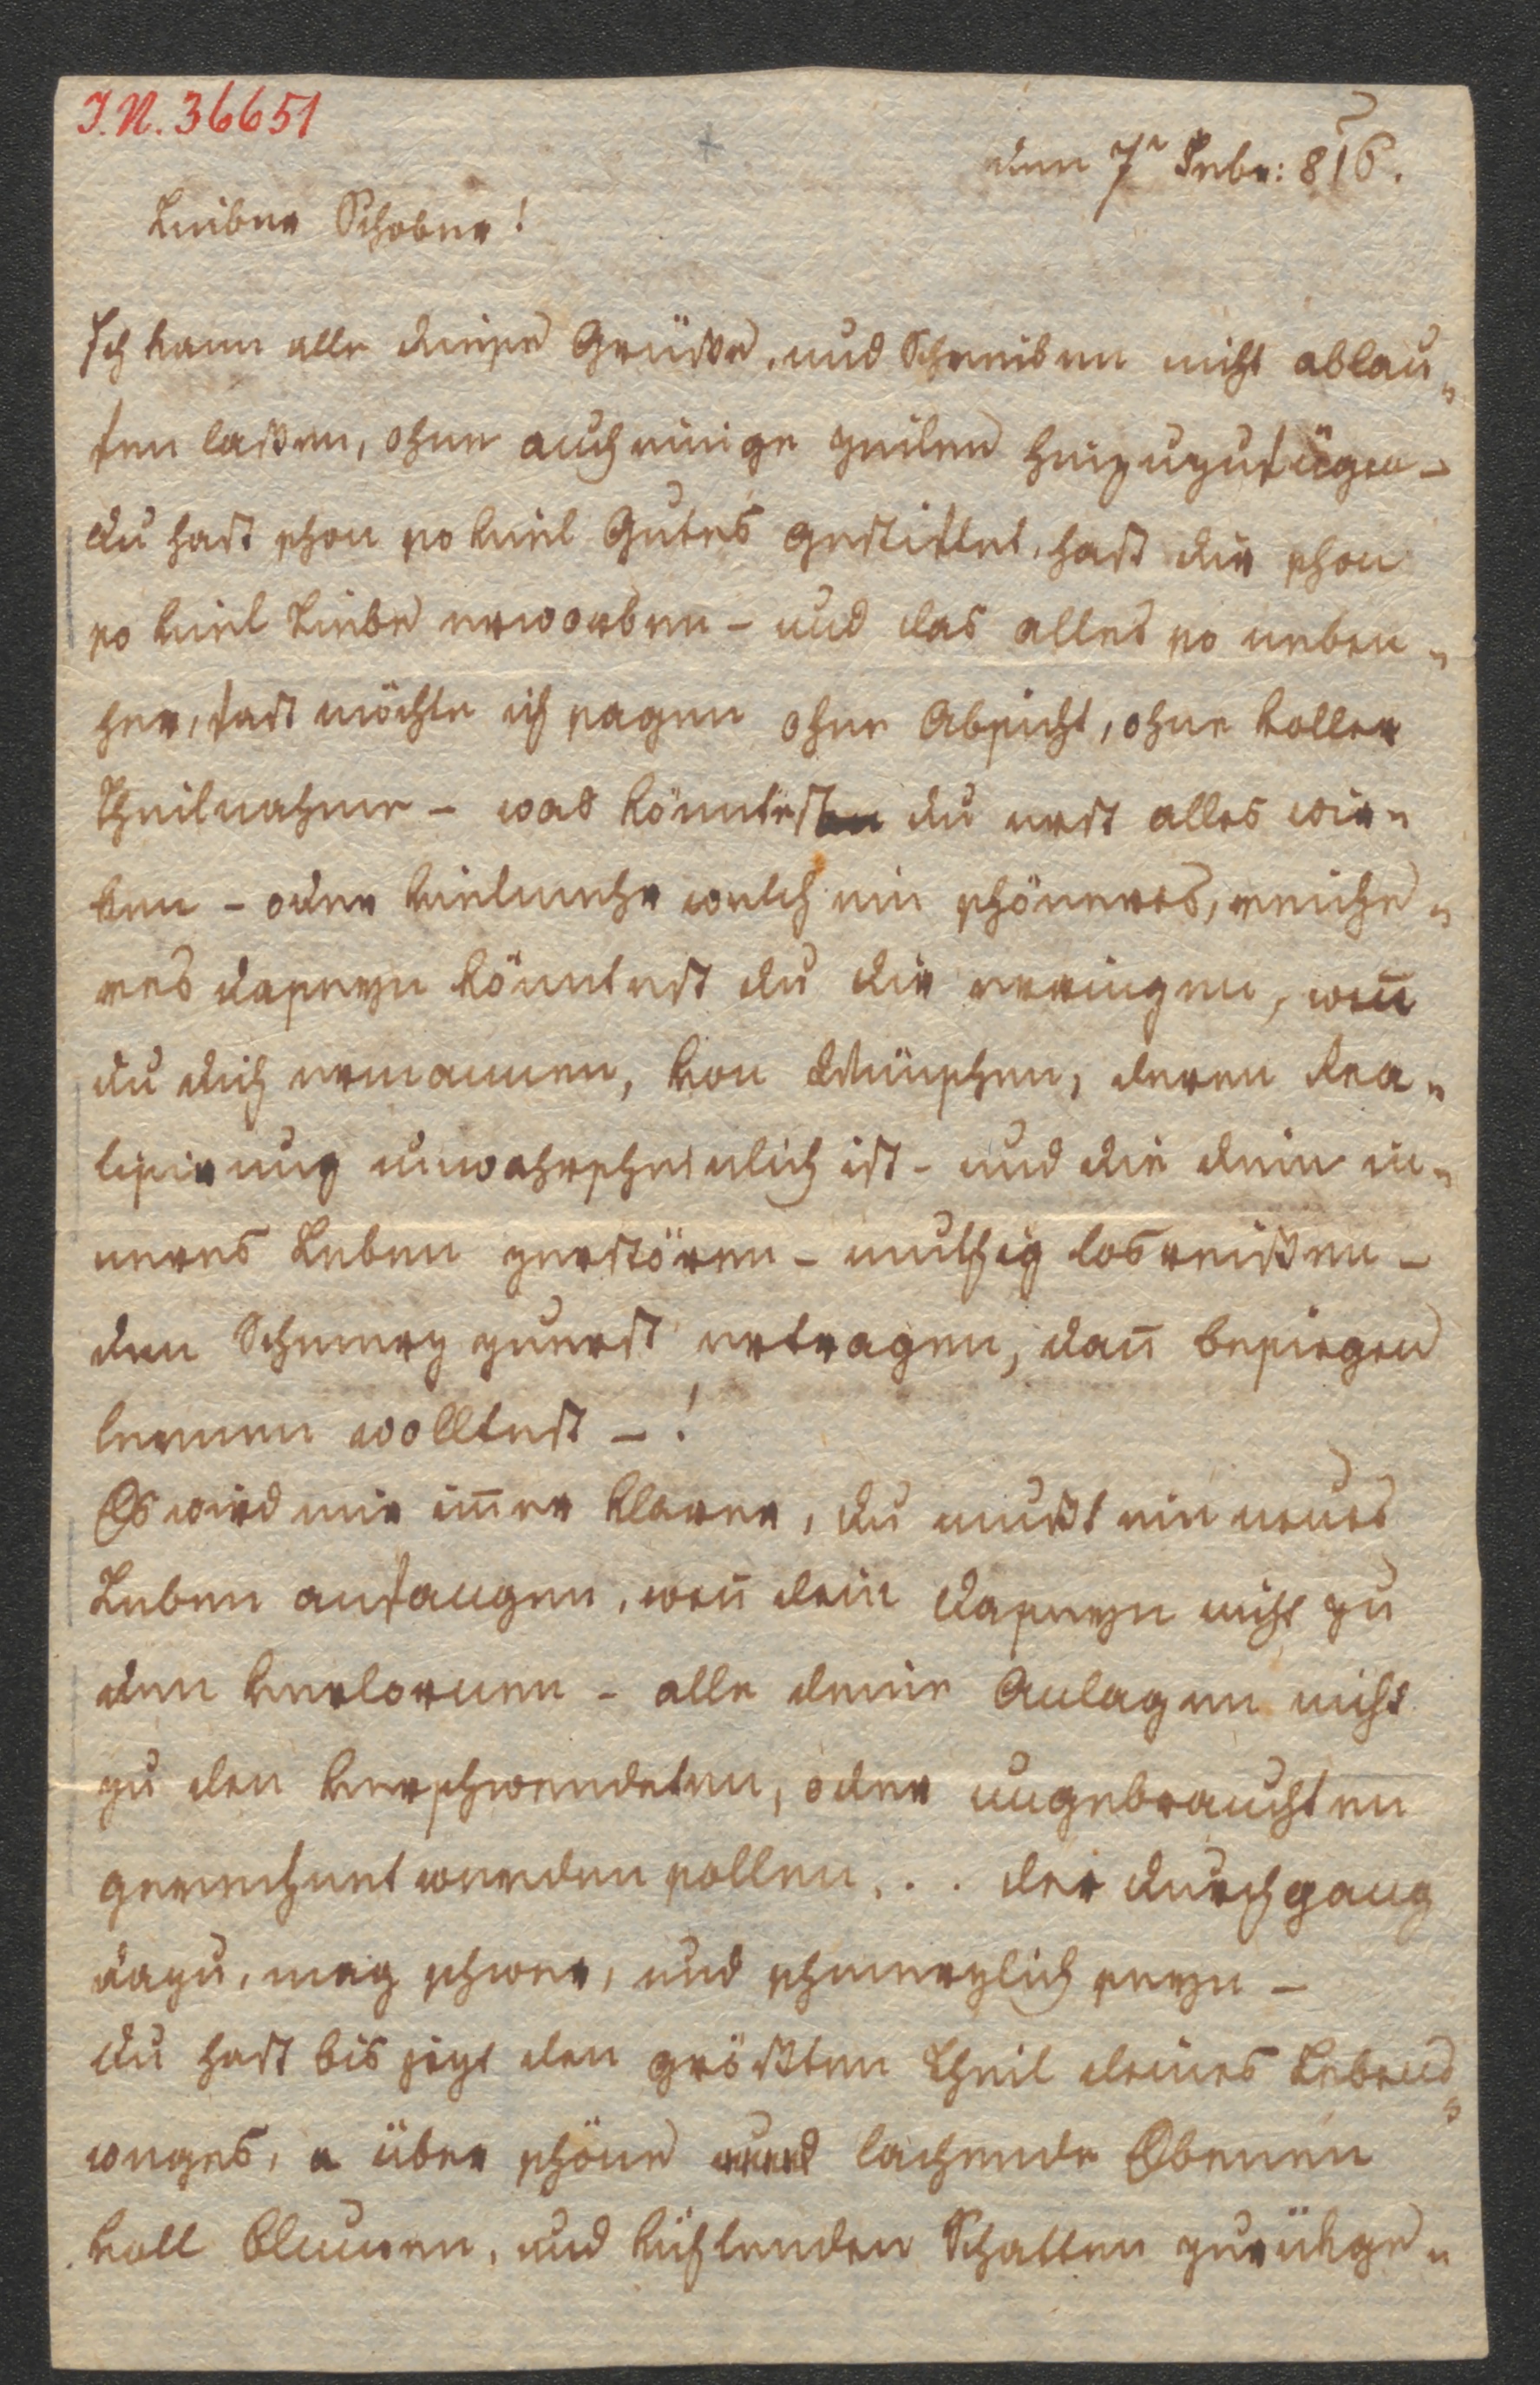 J.N. 36651
den 7t Febr: 816.
Lieber Schober!
Ich kann alle diese Grüße, und Schreiben nicht ablau„
fen laßen, ohne auch einige Zeilen hinzuzufügen –
du hast schon so viel Gutes gestiftet, hast dir schon
so viel Liebe erworben – und das alles so neben„
her, fast möchte ich sagen ohne Absicht, ohne voller
Theilnahme – was könntest du erst alles wir„
ken – oder vielmehr welch ein schöneres, reiche„
res daseyn könntest du dir erringen, weñ
du dich ermannen, von Wünschen, deren Rea„
lisirung unwahrscheinlich ist – und die dein in„
neres Leben zerstören – muthig losreißen –
den Schmerz zuerst ertragen, dañ besiegen
lernen wolltest – !
Es wird mir im̄er klarer, du mußt ein neues
Leben anfangen, weñ dein daseyn nicht zu
den verlornen – alle deine Anlagen nicht
zu den verschwendeten, oder ungebrauchten
gerechnet werden sollen... der durchgang
dazu, mag schwer, und schmerzlich seyn –
du hast bis jezt den größten Theil deines Lebens„
weges, über schöne und lachende Ebenen
voll Blumen, und kühlenden Schatten zurükge„